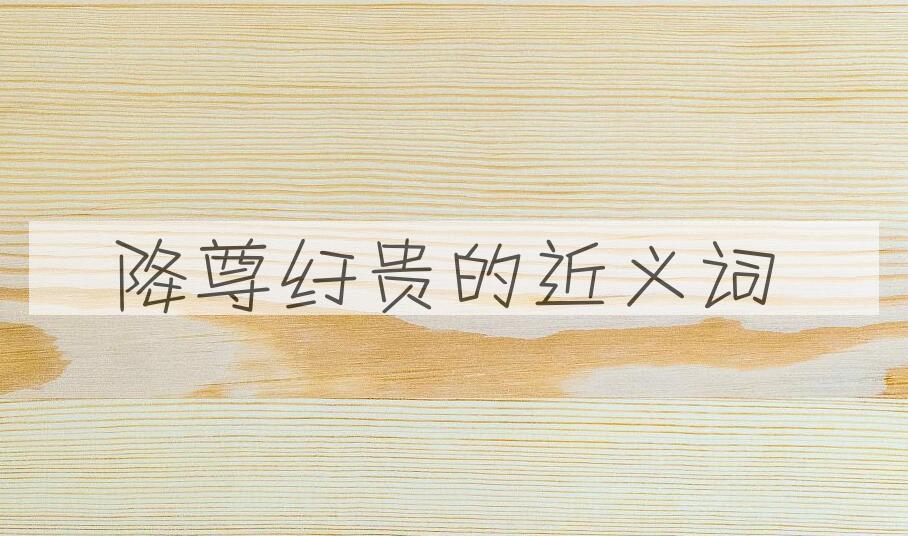 降尊纡贵的近义词